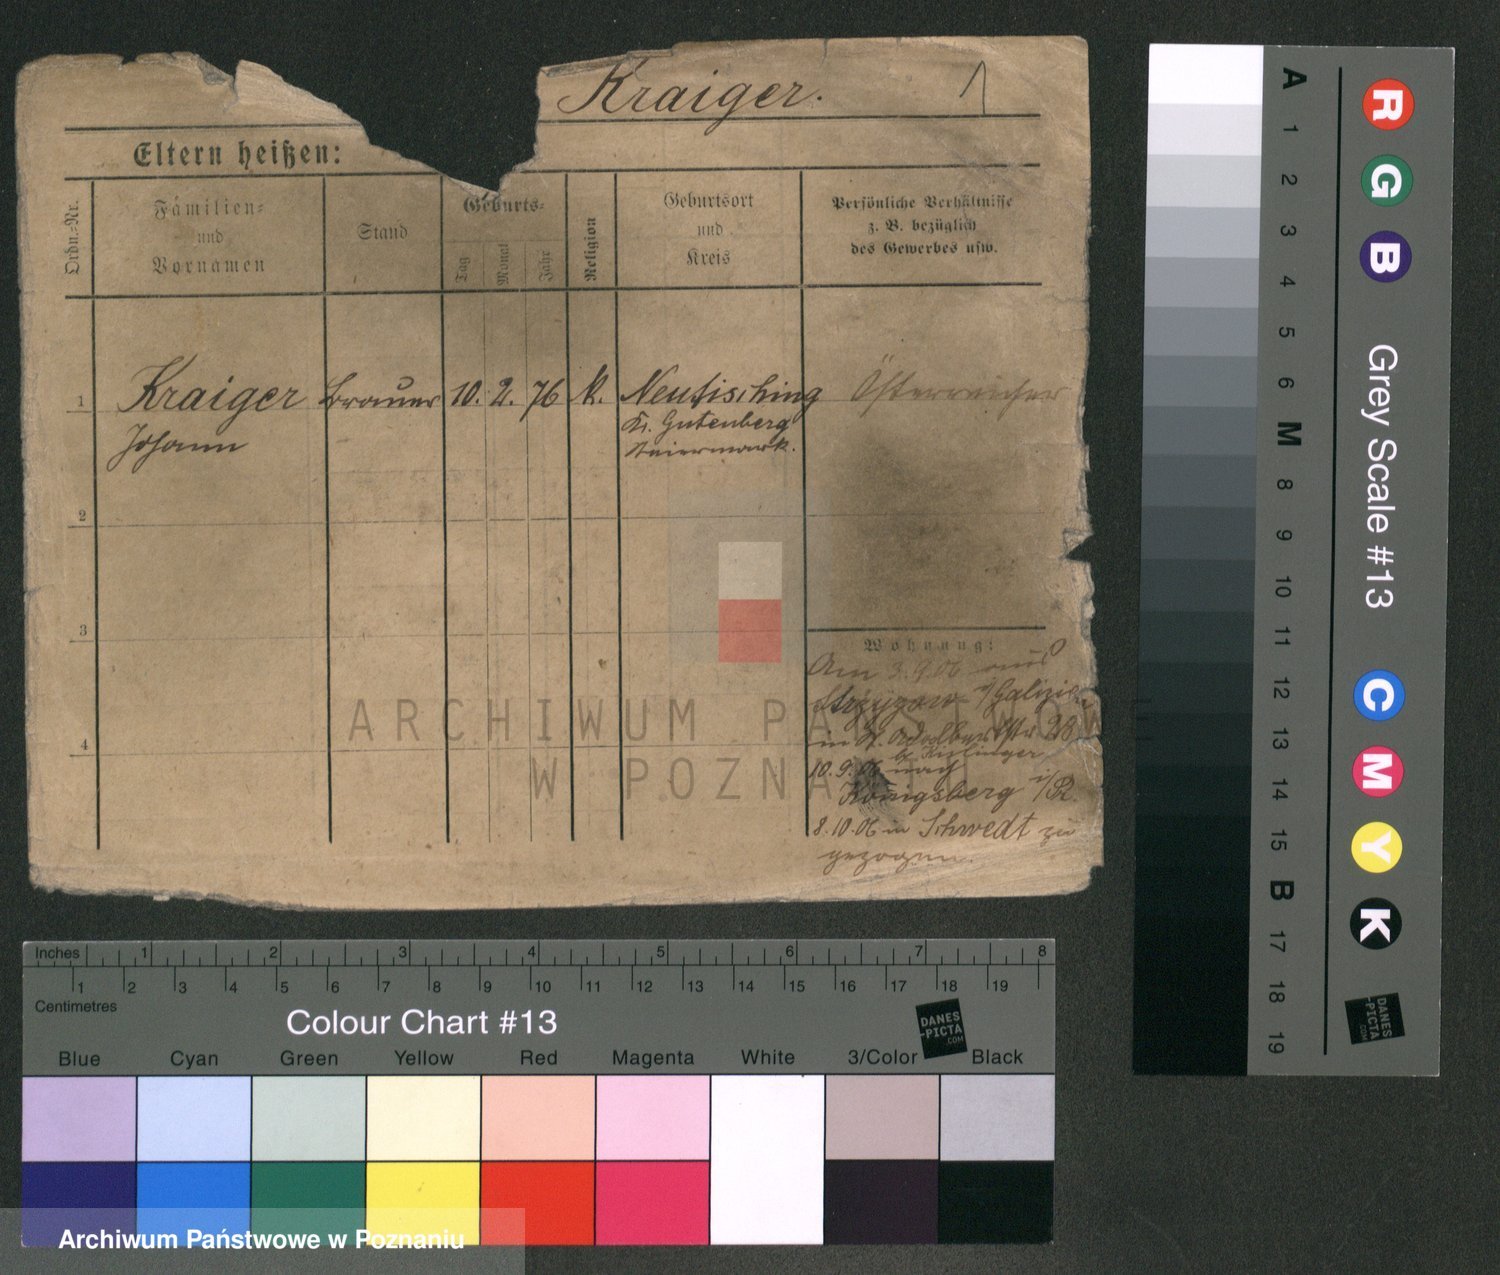 Kraiger. 1
Eltern heißen:
Ordn.-Nr.
Familien-
und
Vornamen
Stand
Geburts-
Tag
Monat
Jahr
Religion
Geburtsort
und
Kreis
Persönliche Verhältnisse
z. B. bezüglich
des Gewerbes usw.
1 Kraiger Brauer 10. 2. 76 k. Neutisching Österreicher
Johann
Kr. Gutenberg
Steiermark.
2
3
4
Wohnung:
Am 3.9.06 aus
Strzyzow i/Galizien
in
10.9.06 nach
Königsberg i/Pr.
8.10.06 in Schwedt zu
gezogen.
ARCHIWUM PAŃSTWOWE
W POZNANIU
A 1 2 3 4 5 6 M 8 9 10 11 12 13 14 15 B 17 18 19
R G B
Grey Scale #13
C M Y K
DANES
-PICTA
.COM
Inches 1 2 3 4 5 6 7 8
1 2 3 4 5 6 7 8 9 10 11 12 13 14 15 16 17 18 19
Centimetres
Colour Chart #13
DANES
-PICTA
.COM
Blue Cyan Green Yellow Red Magenta White 3/Color Black
Archiwum Państwowe w Poznaniu